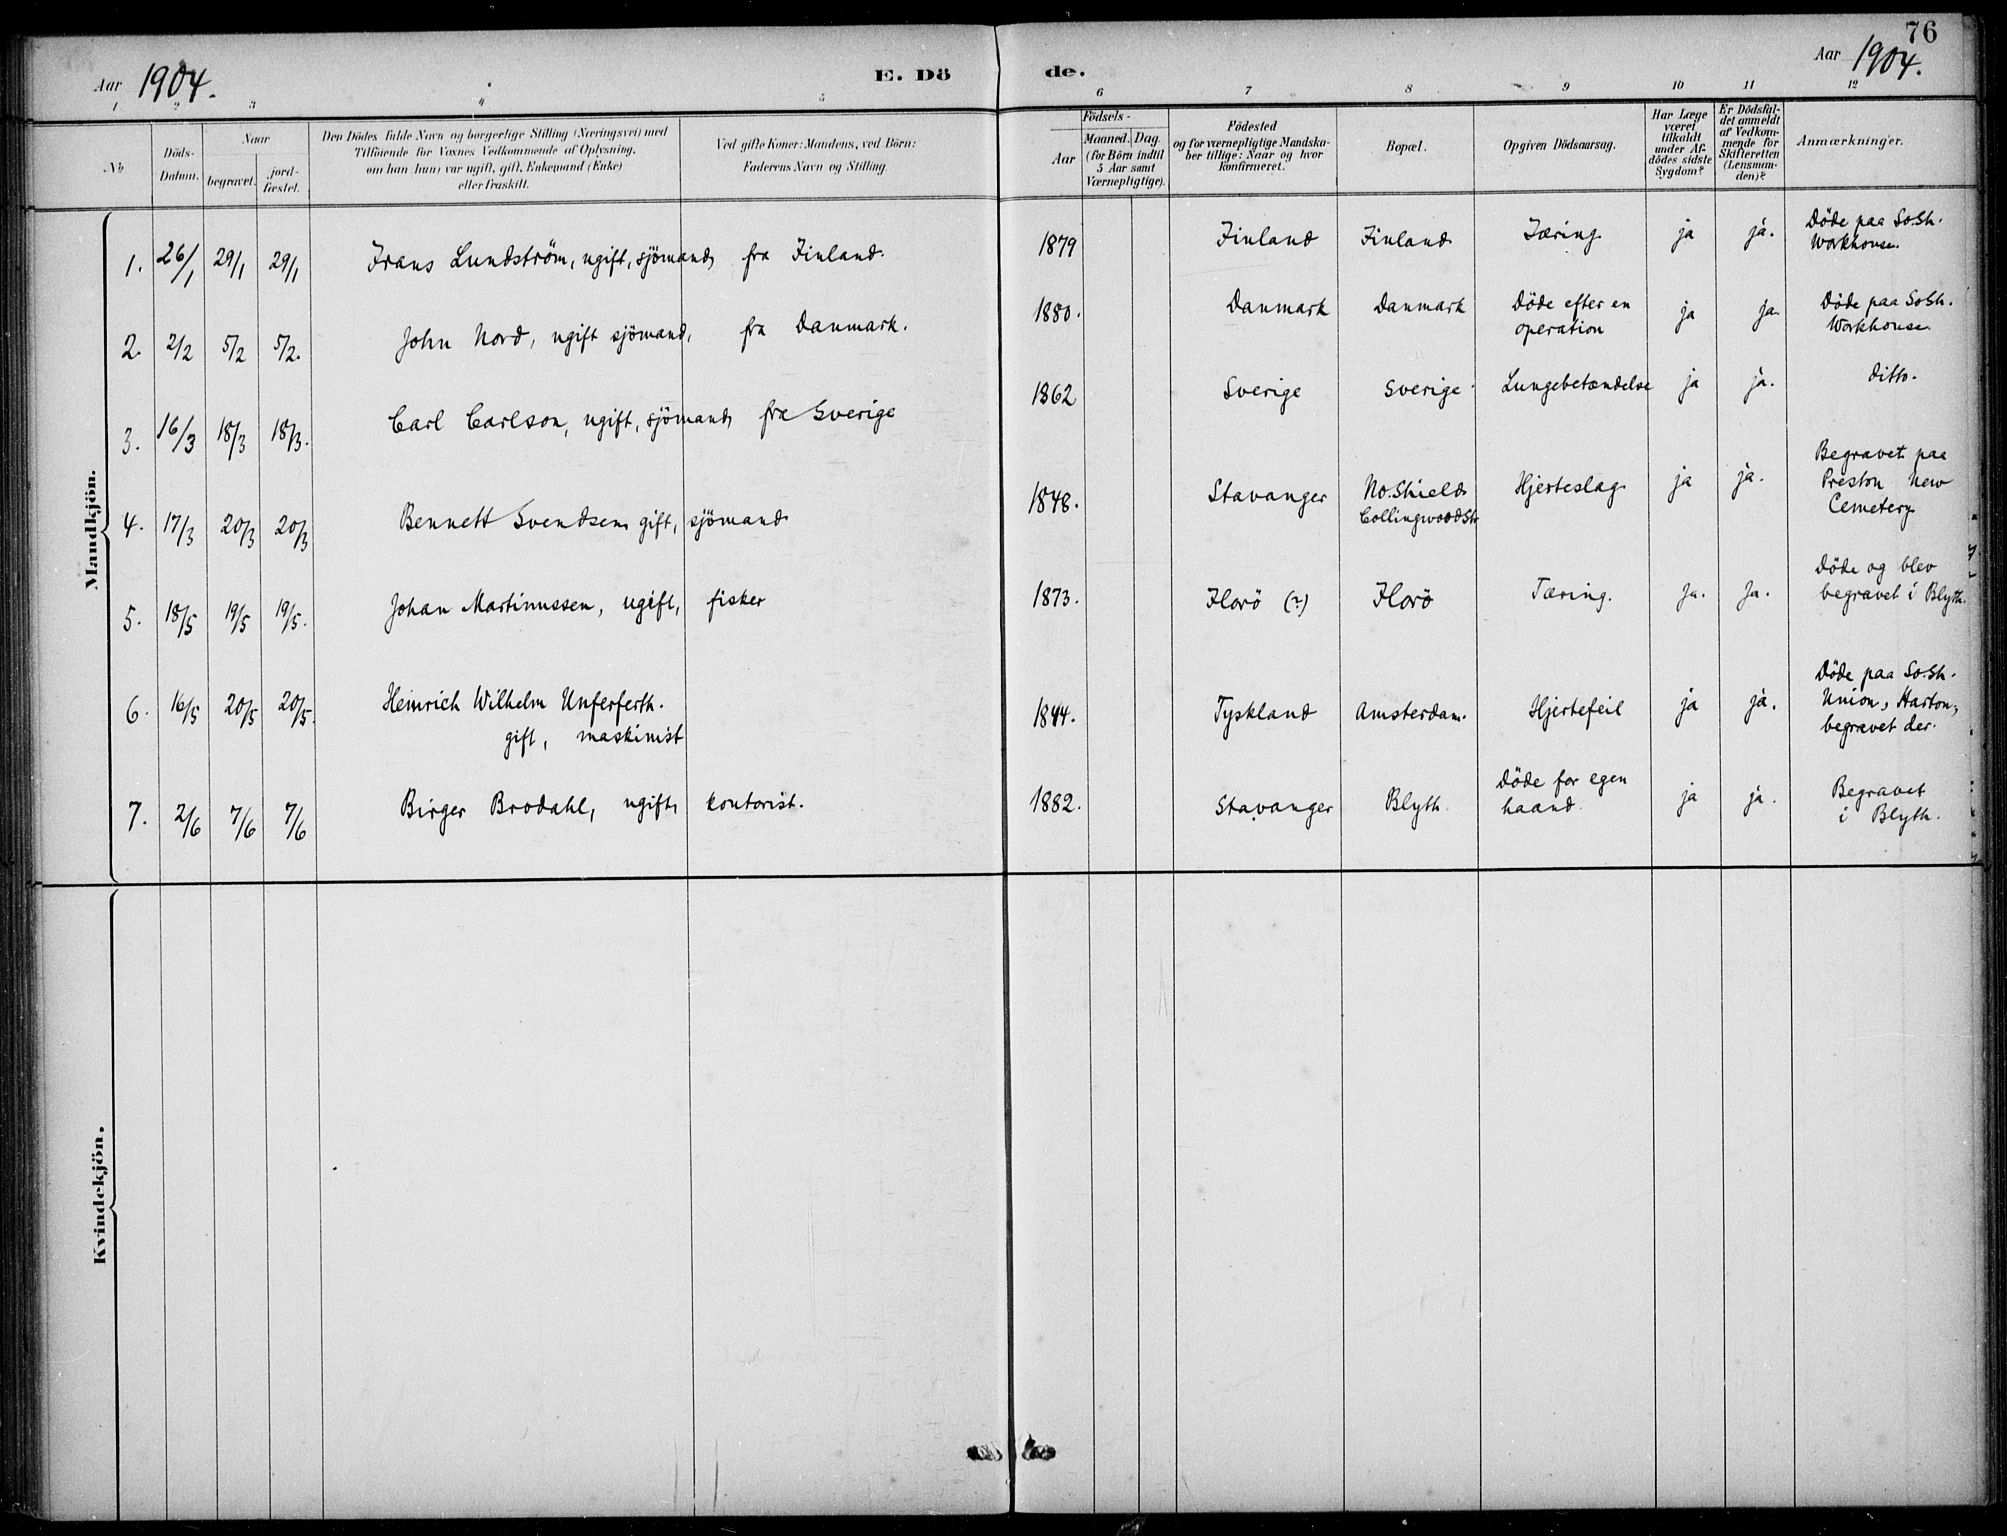 76
Aar 1904.
E. Dö de.
Aar 1904.
1 2 3 4 5 6 7 8 9 10 11 12
No.
Döds-
Datum.
Naar
begravet.
jord-
fæstet.
Den Dödes fulde Navn og borgerlige Stilling (Næringsvei) med
Tilföiende for Voxnes Vedkommende af Oplysning,
om han (hun) var ugift, gift, Enkemand (Enke)
eller fraskilt.
Ved gifte Koner: Mandens, ved Börn:
Faderens Navn og Stilling.
Födsels-
Aar
Maaned.
Dag.
(for Börn indtil
5 Aar samt
Værnepligtige).
Födested
og for værnepligtige Mandska-
ber tillige: Naar og hvor
konfirmeret.
Bopæl.
Opgiven Dödsaarsag.
Har Læge
været
tilkaldt
under Af-
dödes sidste
Sygdom?
Er Dödsfal-
det anmeldt
af Vedkom-
mende for
Skifteretten
(Lensman-
den)?
Anmærkninger.
Mandkjön.
1. 26/1 29/1 29/1 Frans Lundström, ugift, sjömand, fra Finland. 1879 Finland Finland Tæring ja ja. Döde paa So.Sh.
Workhouse.
2. 2/2 5/2 5/2. John Nord, ugift sjömand, fra Danmark. 1880. Danmark Danmark Döde efter en
operation ja ja. Döde paa So.Sh.
Workhouse.
3. 16/3 18/3 18/3. Carl Carlson, ugift, sjömand, fra Sverige 1862 Sverige Sverige Lungebetændelse ja ja. ditto.
4. 17/3 20/3 20/3 Bennett Svendsen, gift, sjömand 1848. Stavanger No.Shields
Collingwood Str Hjerteslag ja ja. Begravet paa
Preston New
Cemetery
5. 18/5 19/5 19/5. Johan Martinussen, ugift, fisker 1873. Florö (?) Florö Tæring. ja. ja. Döde og blev
begravet i Blyth.
6. 16/5 20/5 20/5. Heinrich Wilhelm Unferferth.
gift, maskinist 1844. Tyskland Amsterdam. Hjertefeil ja ja. Döde paa So.Sh.
Union, Harton,
begravet der.
7. 2/6 7/6 7/6 Birger Brodahl, ugift, kontorist. 1882. Stavanger Blyth. Döde for egen
haand. ja ja. Begravet
i Blyth.
Kvindekjön.